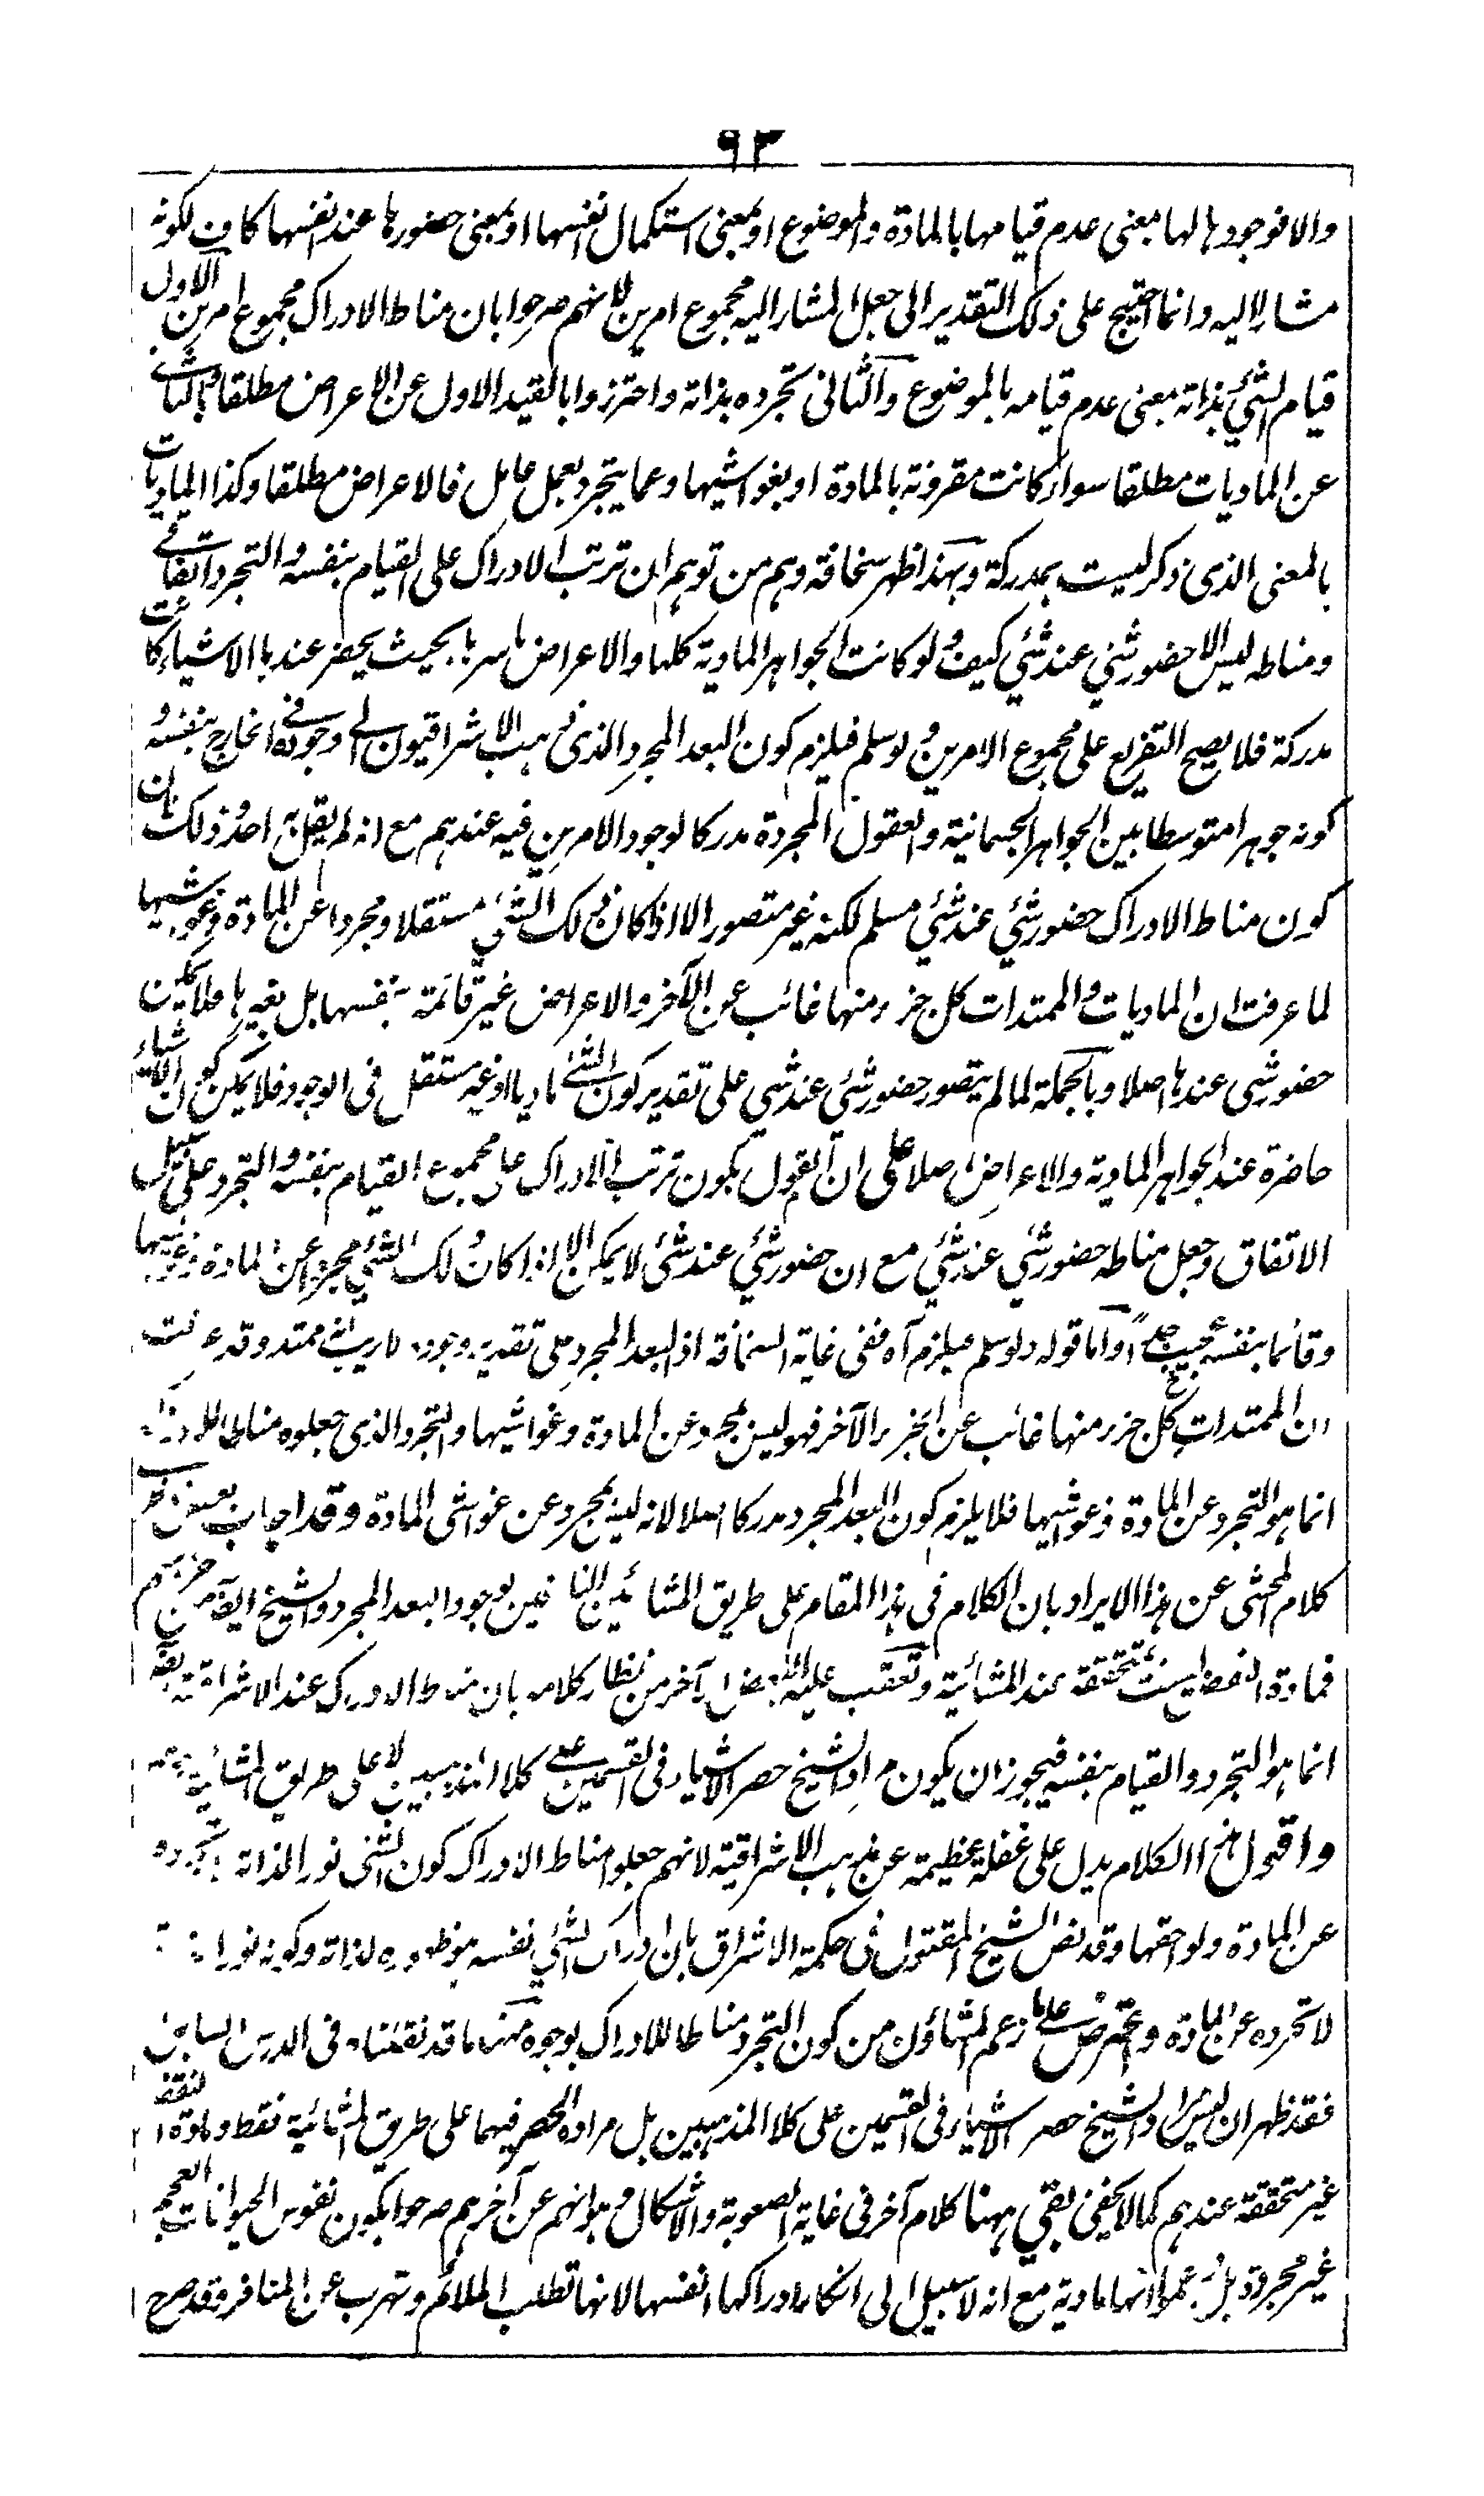 ٩٣
والا فوجودها لها بمعنى عدم قيامها بالمادة والموضوع او بمعنى استكمال انفسها او بمعنى حضورها عند انفسها كاف لكونه
مشارا اليه وانما احتيج على ذلك التقدير الى جعل المشار اليه مجموع امرين لانهم صرحوا بان مناط الادراك مجموع امرين الاول
قيام الشئ بذاته بمعنى عدم قيامه بالموضوع والثانى تجرده بذاته واحترزوا بالقيد الاول عن الاعراض مطلقا وبالثانى
عن الماديات مطلقا سواء كانت مقرونة بالمادة او بغواشيها وعما يتجرد بعمل عامل فالاعراض مطلقا وكذا الماديات
بالمعنى الذى ذكر ليست بمدركة وبهذا ظهر سخافة وهم من توهم ان ترتب الادراك على القيام بنفسه والتجرد اتفاقى
ومناطه ليس الا حضور شئ عند شئ كيف ولو كانت الجواهر المادية كلها والاعراض باسرها بحيث يحضر عندها الاشياء كانت
مدركة فلا يصح التفريع على مجموع الامرين ولو سلم فيلزم كون البعد المجرد الذى ذهب الاشراقيون الى وجوده فى الخارج بنفسه و
كونه جوهرا متوسطا بين الجواهر الجسمانية والعقول المجردة مدركا لوجود الامرين فيه عندهم مع انه لم يقل به احد وذلك لان
كون مناط الادراك حضور شئ عند شئ مسلم لكنه غير متصور الا اذا كان ذلك الشئ مستقلا ومجردا عن المادة وغواشيها
لما عرفت ان الماديات والممتدات كل جزء منها غائب عن الآخر والاعراض غير قائمة بنفسها بل بغيرها فلا يمكن
حضور شئ عندها اصلا وبالجملة لما لم يتصور حضور شئ عند شئ على تقدير كون الشئ ماديا او غير مستقل فى الوجود فلا يمكن كون الاشياء
حاضرة عند الجواهر المادية والاعراض اصلا على ان القول بكون ترتب الادراك على مجموع القيام بنفسه والتجرد على سبيل
الاتفاق وجعل مناطه حضور شئ عند شئ مع ان حضور شئ عند شئ لا يمكن الا اذا كان ذلك الشئ مجردا عن المادة وغواشيها
وقائما بنفسه عجيب جدا واما قوله ولو سلم فيلزم آه ففى غاية السخافة اذ البعد المجرد على تقدير وجوده لا ريب انه ممتد وقد عرفت
ان الممتدات كل جزء منها غائب عن الجزء الآخر فهو ليس بمجرد عن المادة وغواشيها والتجرد الذى جعلوه مناطا للادراك
انما هو التجرد عن المادة وغواشيها فلا يلزم كون البعد المجرد مدركا اصلا لانه ليس بمجرد عن غواشى المادة وقد اجاب بعض نظار
كلام المحشى عن هذا الايراد بان الكلام فى هذا المقام على طريق المشائين النافين لوجود البعد المجرد والشيخ ايضا من حزبهم
فمادة النقض ليست متحققة عند المشائية وتعقب عليه البعض الآخر من نظار كلامه بان مناط الادراك عند الاشراقية ايضا
انما هو التجرد والقيام بنفسه فيجوز ان يكون مراد الشيخ حصر الاشياء فى القسمين على كلا المذهبين لا على طريق المشائية فقط
واقول هذا الكلام يدل على غفلة عظيمة عن مذهب الاشراقية لانهم جعلوا مناط الادراك كون الشئ نورا لذاته لا تجرده
عن المادة ولواحقها وقد نص الشيخ المقتول فى حكمة الاشراق بان ادراك الشئ نفسه هو ظهوره لذاته وكونه نورا
لا تجرده عن المادة واعترض على ما زعم المشاؤن من كون التجرد مناطا للادراك بوجوه منها ما قد نقلناه فى الدرس السابق
فقد ظهر ان ليس مراد الشيخ حصر الاشياء فى القسمين على كلا المذهبين بل مراده الحصر فيهما على طريق المشائية فقط ومادة النقض
غير متحققة عندهم كما لا يخفى بقى ههنا كلام آخر فى غاية الصعوبة والاشكال وهو انهم عن آخرهم صرحوا بكون نفوس الحيوانات العجم
غير مجردة بل زعموا انها مادية مع انه لا سبيل الى انكار ادراكها انفسها لانها تطلب الملائم وتهرب عن المنافر وقد صرح